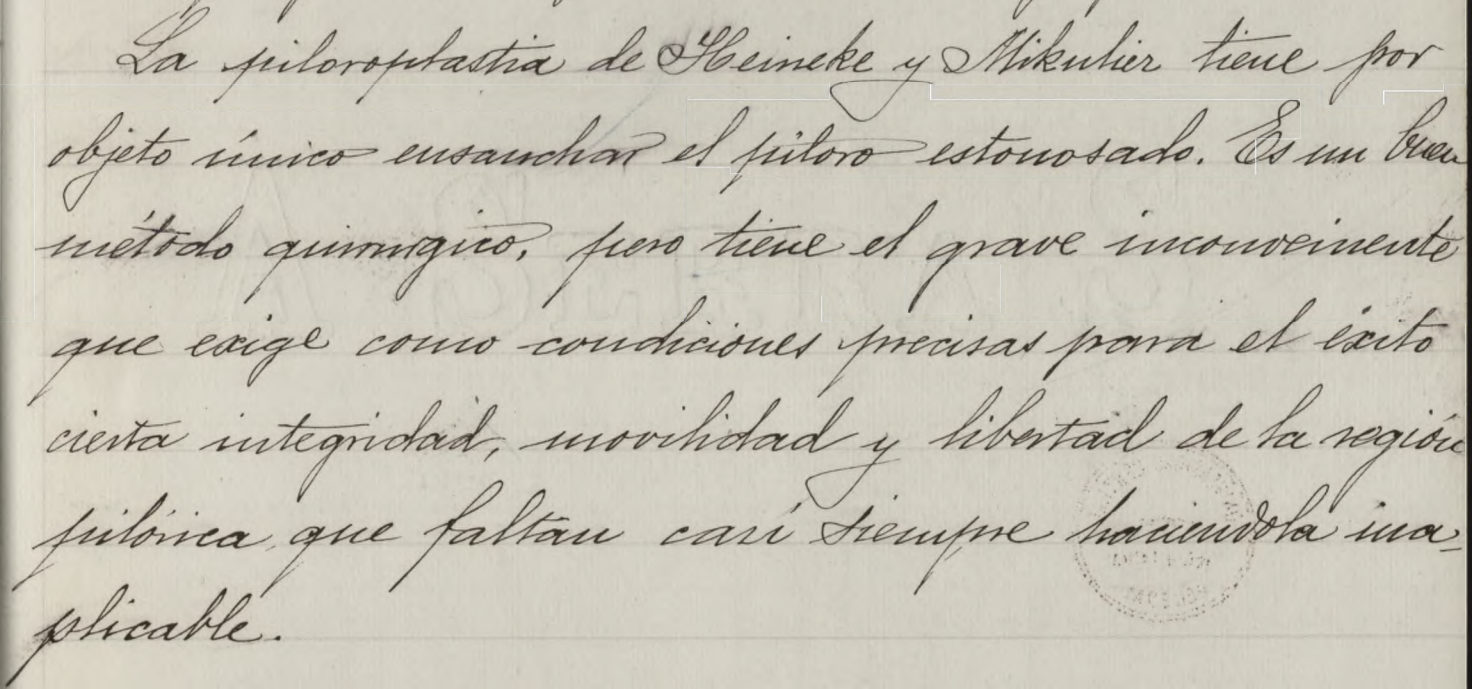 La piloroplastia de Heineke y Mikulier tiene por
objeto único ensanchar el píloro estonosado. Es un buen
método quirurgico, pero tiene el grave inconveinente
que exige como condiciones precisas para el éxito
cierta integridad, movilidad y libertad de la región
pilórica que faltan casi siempre haciendola ina-
plicable.